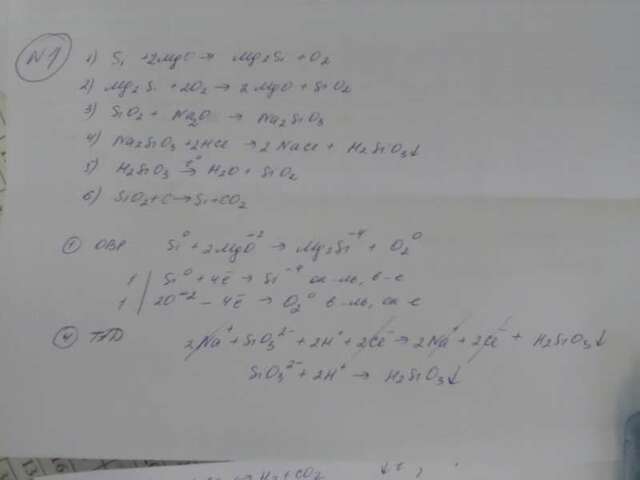 N1
1) Si + 2MgO → Mg2Si + O2
2) Mg2Si + 2O2 → 2MgO + SiO2
3) SiO2 + Na2O → Na2SiO3
4) Na2SiO3 + 2HCl → 2NaCl + H2SiO3↓
5) H2SiO3 t°→ H2O + SiO2
6) SiO2 + C → Si + CO2
① ОВР Si⁰ + 2MgO⁻² → Mg2Si⁻⁴ + O2⁰
1 | Si⁰ + 4ē → Si⁻⁴ ок-ль, в-е
1 | 2O⁻² − 4ē → O2⁰ в-ль, ок-е
④ ТЭД 2Na⁺ + SiO3²⁻ + 2H⁺ + 2Cl⁻ → 2Na⁺ + 2Cl⁻ + H2SiO3↓
SiO3²⁻ + 2H⁺ → H2SiO3↓